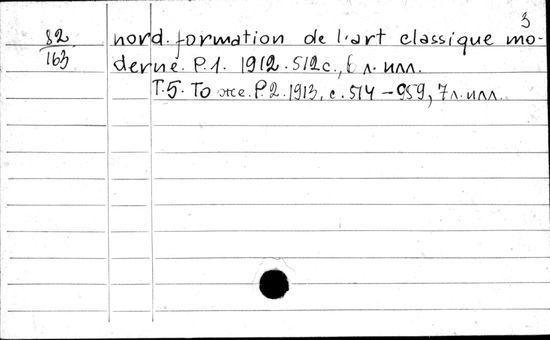 3
82 nord. formation de l'art classique mo-
163 derne. P.1. 1912. 512 с., 6 л. илл.
Т.5. То же. P.2. 1913, с. 514-959, 7 л. илл.